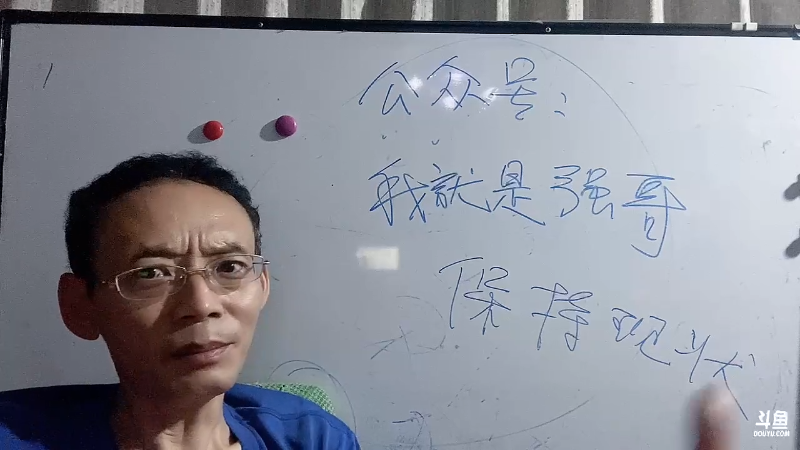 公众号：
我就是强哥
保持现状
斗鱼
DOUYU.COM